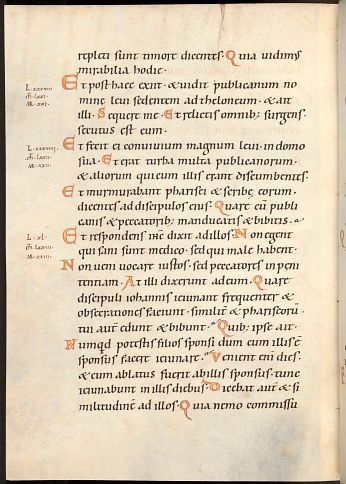 repleti sunt timore dicentes. Quia uidimus
mirabilia hodie.
Et post haec exiit. & uidit publicanum no
mine leui sedentem ad theloneum. & ait
illi. Sequere me. Et relictis omnib; surgens
secutus est eum.
Et fecit ei conuiuium magnum leui in domo
sua. Et erat turba multa publicanorum.
& aliorum qui cum illis erant discumbentes.
Et murmurabant pharisei & scribe eorum.
dicentes ad discipulos eius. Quare cu publi
canis & peccatorib; manducatis & bibitis.
Et respondens ihc dixit ad illos. Non egent
qui sani sunt medico. sed qui male habent.
Non ueni uocare iustos. sed peccatores in peni
tentiam. At illi dixerunt ad eum. Quare
discipuli iohannis ieiunant frequenter &
obsecrationes faciunt. similit & phariseoru.
tui aut edunt & bibunt. Quib; ipse ait.
Numqd potestis filios sponsi dum cum illis e
sponsus facere ieiunare. Venient em dies.
& cum ablatus fuerit ab illis sponsus. tunc
ieiunabunt in illis dieb. Dicebat aut & si
militudine ad illos. Quia nemo commissu